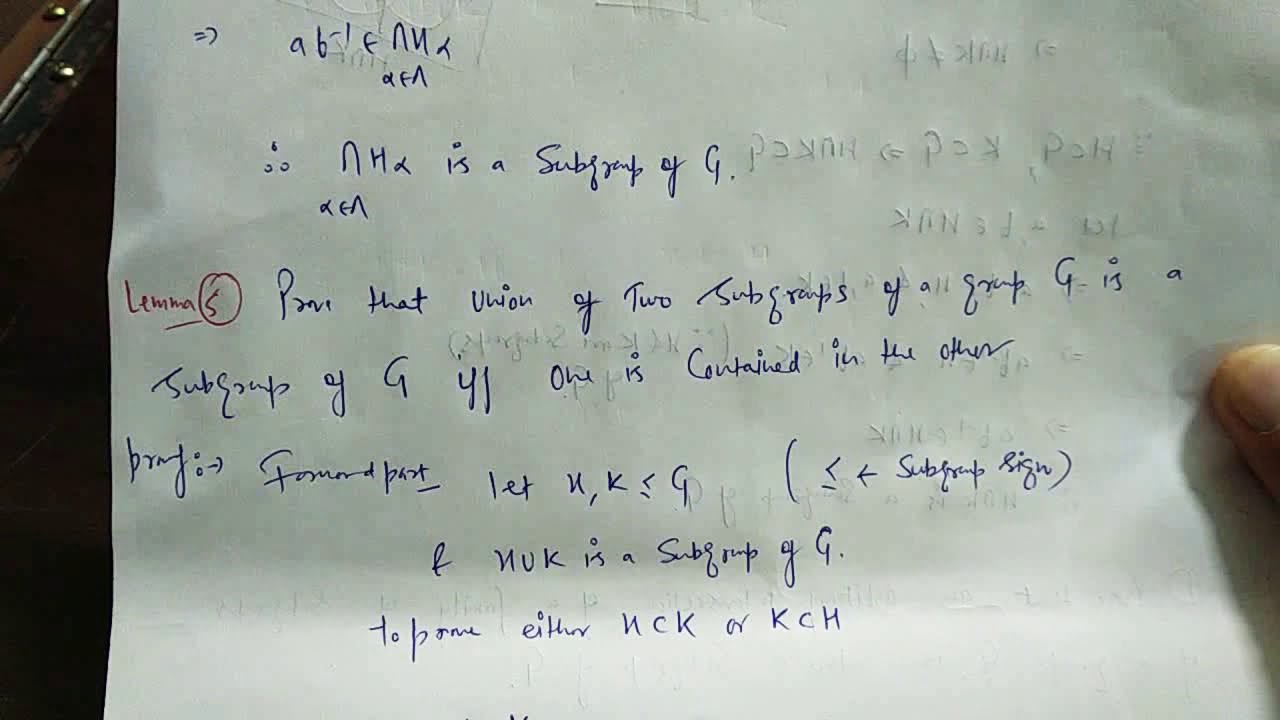 ⇒ ab⁻¹ ∈ ∩Hα
α∈Λ
∴ ∩Hα is a Subgroup of G.
α∈Λ
Lemma 5 Prove that Union of Two Subgroups of a group G is a
Subgroup of G iff One is Contained in the other
proof:→ Forward part let H, K ≤ G ( ≤ ← Subgroup Sign)
& H∪K is a Subgroup of G.
to prove either H⊂K or K⊂H